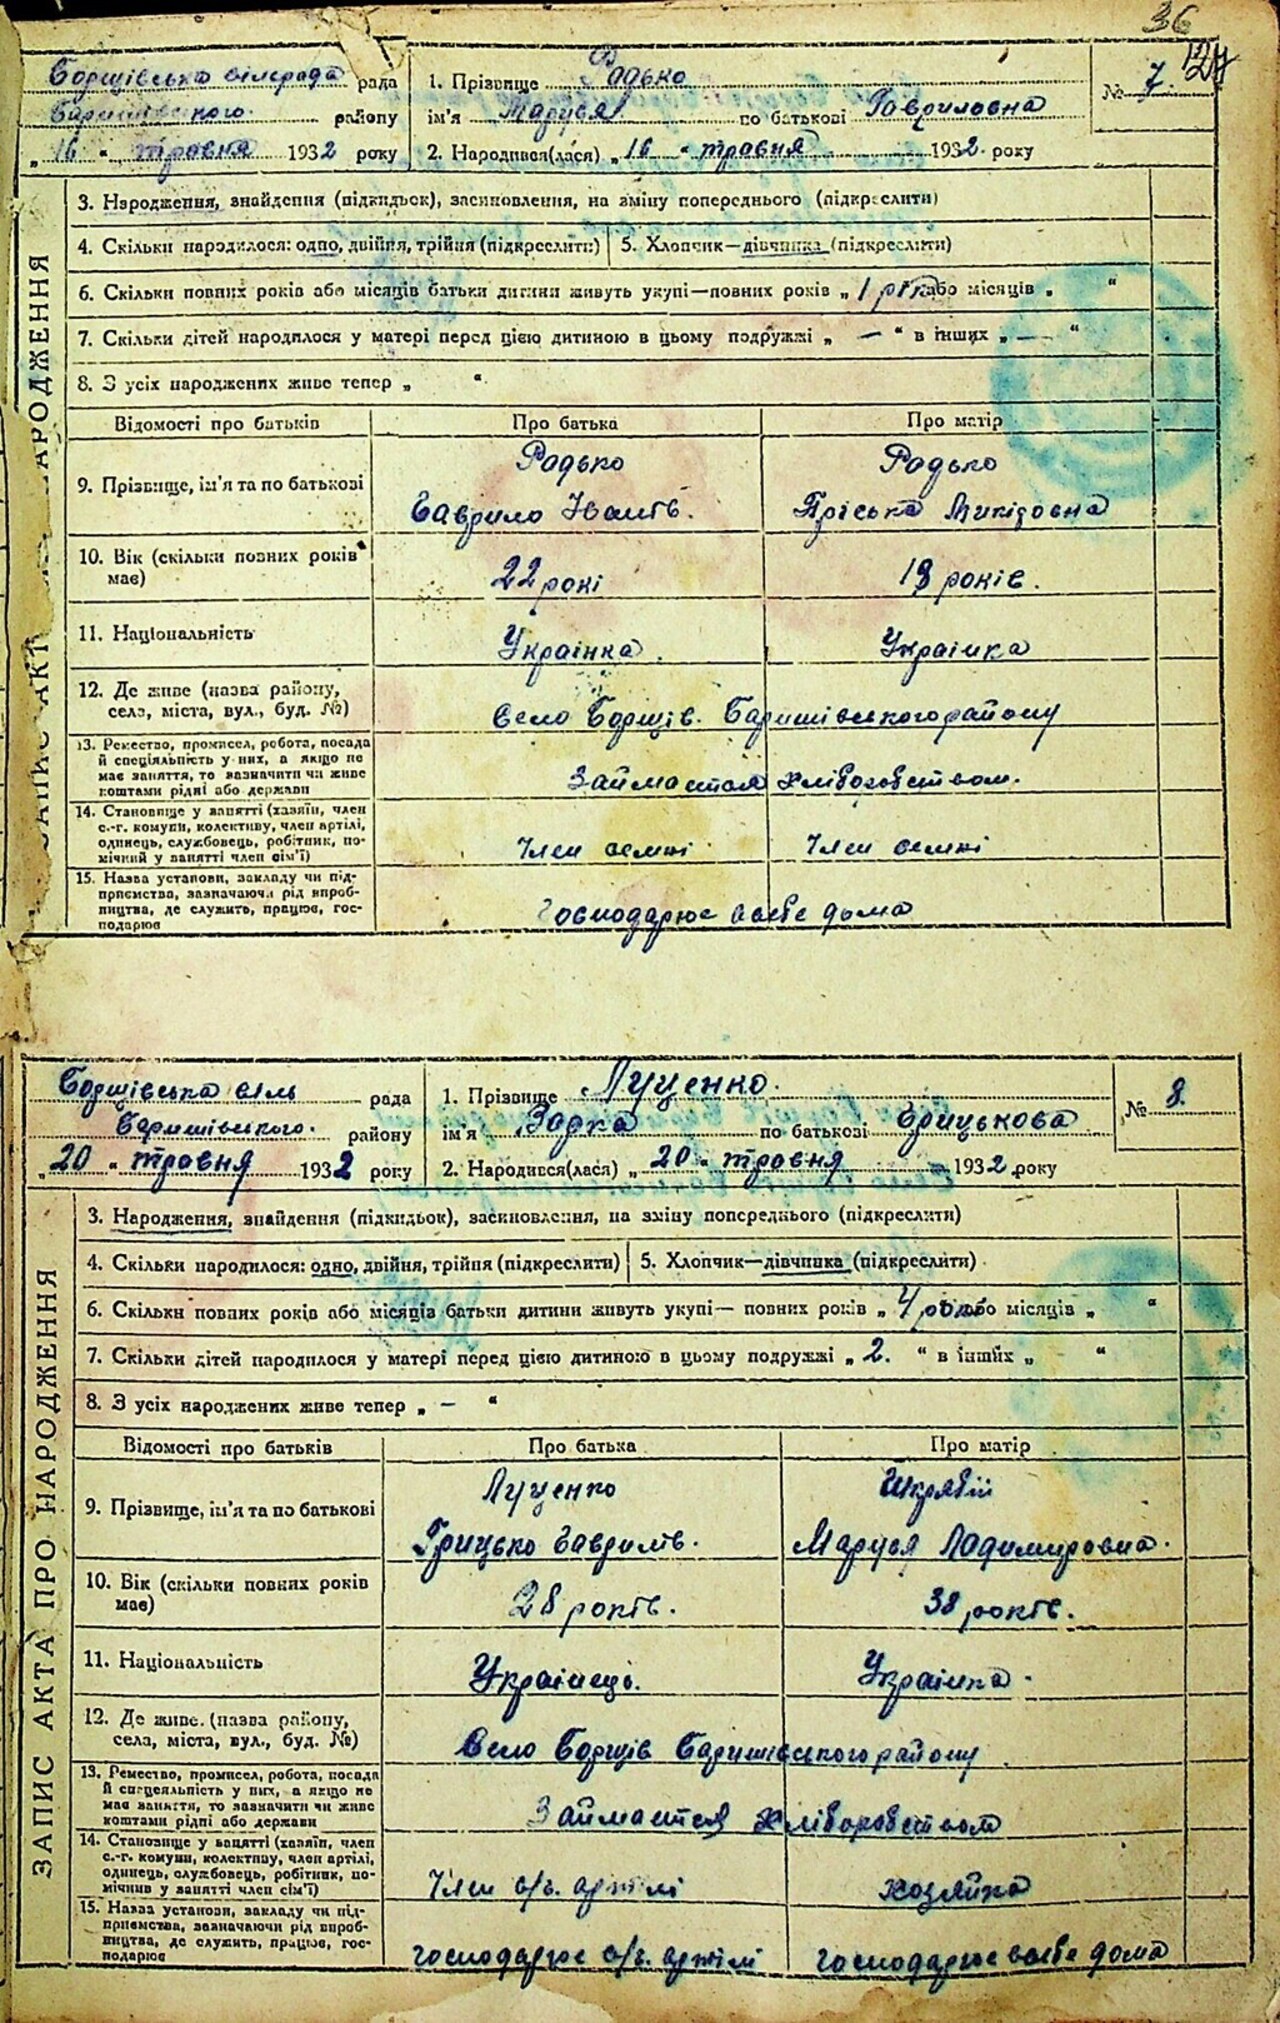 36
127
Борщівська сілград рада
Баришівського району
„16“ травня 1932 року
1. Прізвище Радько
ім'я Маруся по батькові Гавриловна
2. Народився(лася) „16“ травня 1932 року
№ 7.
ЗАПИС АКТ НАРОДЖЕННЯ
3. Народження, знайдення (підкидьок), засиновлення, на зміну попереднього (підкреслити)
4. Скільки народилося: одно, двійня, трійня (підкреслити) 5. Хлопчик—дівчинка (підкреслити)
6. Скільки повних років або місяців батьки дитини живуть укупі—повних років „1 рік або місяців „ “
7. Скільки дітей народилося у матері перед цією дитиною в цьому подружжі „ — “ в інших „ — “
8. З усіх народжених живе тепер „ “
Відомості про батьків Про батька Про матір
9. Прізвище, ім'я та по батькові Радько Радько
Гаврило Іванів. Пріська Микідовна
10. Вік (скільки повних років має) 22 рокі 19 років.
11. Національність Українка. Українка
12. Де живе (назва району, села, міста, вул., буд. №) Село Борщів. Баришівського району
13. Ремество, промисел, робота, посада
й спеціяльність у них, а якщо не
має заняття, то зазначити чи живе
коштами рідні або держави
Займается хліборобством.
14. Становище у занятті (хазяїн, член
с.-г. комуни, колективу, член артілі,
одинець, службовець, робітник, по-
мічний у занятті член сім'ї)
Член семні Член семні
15. Назва установи, закладу чи під-
приємства, зазначаючи рід вироб-
ництва, де служить, працює, гос-
подарює
Господарює всебе дома
Борщівська сіль рада
Баришівського. району
„20“ травня 1932 року
1. Прізвище Луценко.
ім'я Задка по батькові Грицькова
2. Народився(лася) „20“ травня 1932 року
№ 8.
ЗАПИС АКТА ПРО НАРОДЖЕННЯ
3. Народження, знайдення (підкидьок), засиновлення, на зміну попереднього (підкреслити)
4. Скільки народилося: одно, двійня, трійня (підкреслити) 5. Хлопчик—дівчинка (підкреслити)
6. Скільки повних років або місяців батьки дитини живуть укупі— повних років „4 роки або місяців „ “
7. Скільки дітей народилося у матері перед цією дитиною в цьому подружжі „2. “ в інших „ “
8. З усіх народжених живе тепер „ — “
Відомості про батьків Про батька Про матір
9. Прізвище, ім'я та по батькові Луценко Шкрабій
Грицько Гаврилів. Маруся Ладимировна.
10. Вік (скільки повних років має) 28 років. 38 років.
11. Національність Українець. Українка.
12. Де живе. (назва району, села, міста, вул., буд. №) Село Борщів Баришівського району
13. Ремество, промисел, робота, посада
й спецеяльність у них, а якщо не
має заняття, то зазначити чи живе
коштами рідні або держави
Займается хліборобством
14. Становище у занятті (хазяїн, член
с.-г. комуни, колективу, член артілі,
одинець, службовець, робітник, по-
мічник у занятті член сім'ї)
Член с/г. артілі хозяйка
15. Назва установи, закладу чи під-
приємства, зазначаючи рід вироб-
ництва, де служить, працює, гос-
подарює
господарює с/г. артілі господарює всебе дома